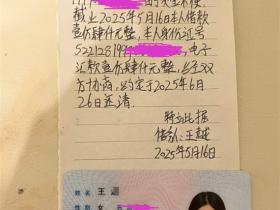 截止2025年5月16日本人借款
壹仟肆仟元整,本人身份证号
522128199 电子
汇款壹仟肆仟元整,经双
方协商,约定于2025年6月
26日还清
特立此据
借款人:王
2025年5月16日
姓名 王
性别 女